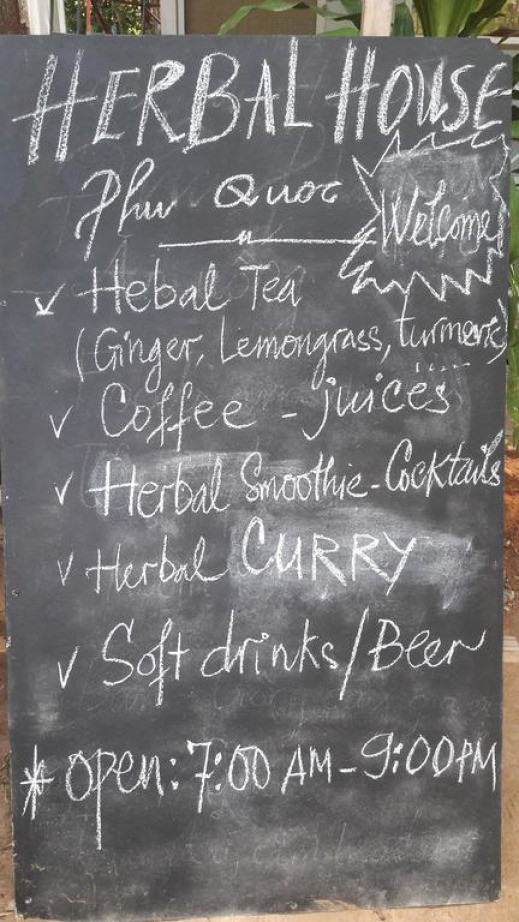 HERBAL HOUSE
Phu Quoc
Welcome
✓ Hebal Tea
(Ginger, Lemongrass, turmeric)
....
✓ Coffee - juices
✓ Herbal Smoothie - Cocktails
✓ Herbal CURRY
✓ Soft drinks/Beer
* open: 7:00 AM - 9:00 PM